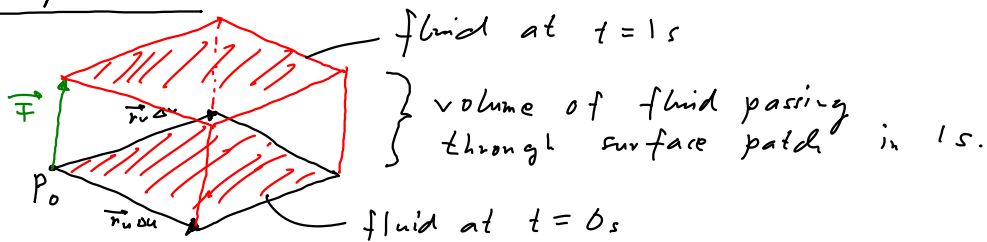 fluid at t = 1 s
F
r_v Δv
volume of fluid passing
through surface patch in 1 s.
P₀
r_u Δu
fluid at t = 0 s